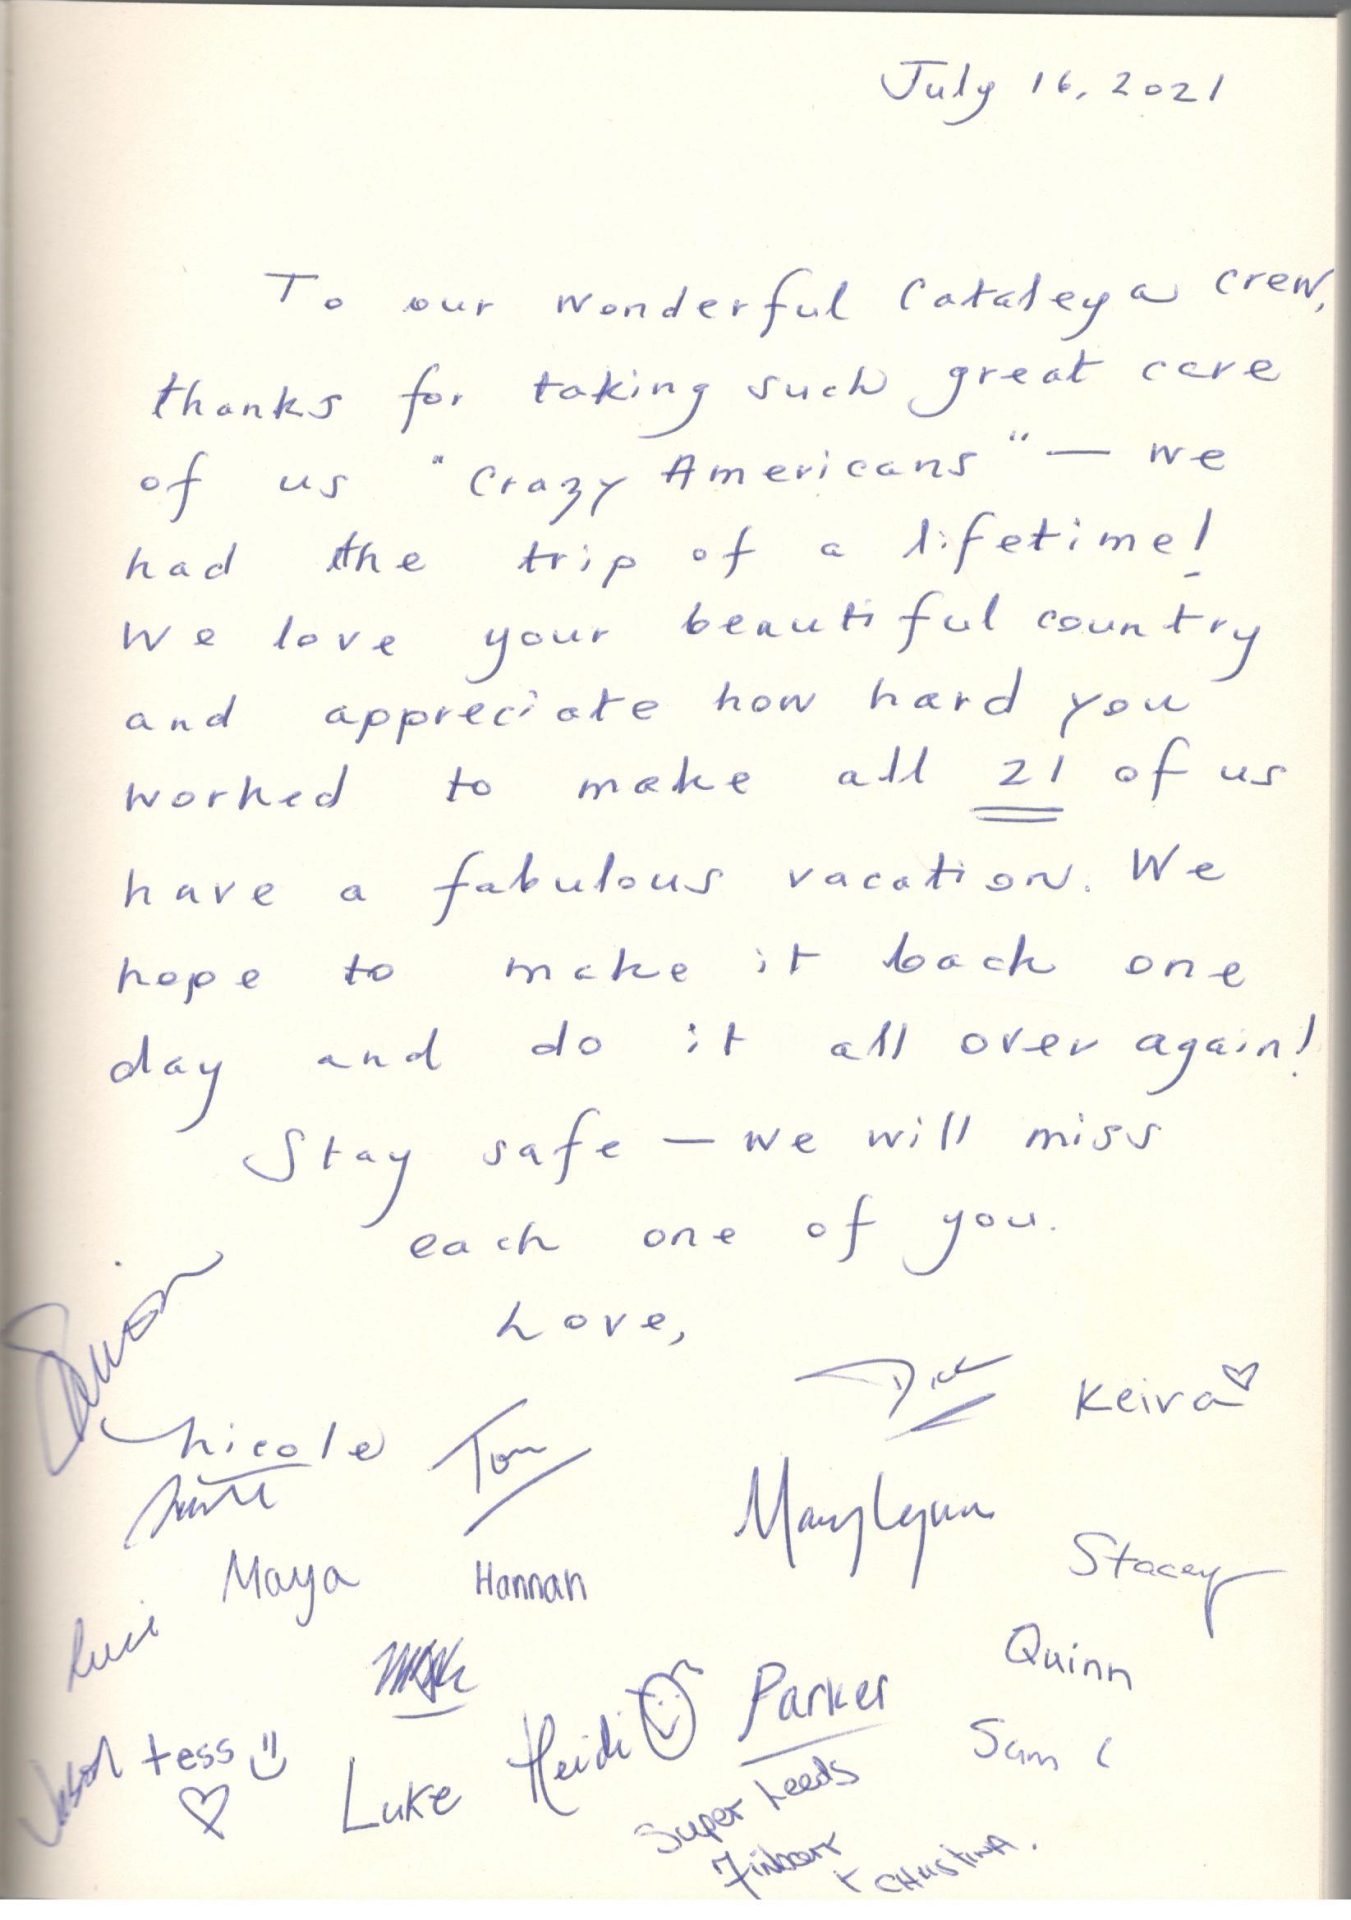 July 16, 2021
To our wonderful Cataleya crew,
thanks for taking such great care
of us "Crazy Americans" — we
had the trip of a lifetime!
We love your beautiful country
and appreciate how hard you
worked to make all 21 of us
have a fabulous vacation. We
hope to make it back one
day and do it all over again!
Stay safe — we will miss
each one of you.
Love,
Dick Keira
Nicole Tom
MaryLynn
Stacey
Maya Hannah
Quinn
Parker
Heidi
Sam C
Jason tess
Luke
Super Leeds
Finbarr
+ CHRISTINA.